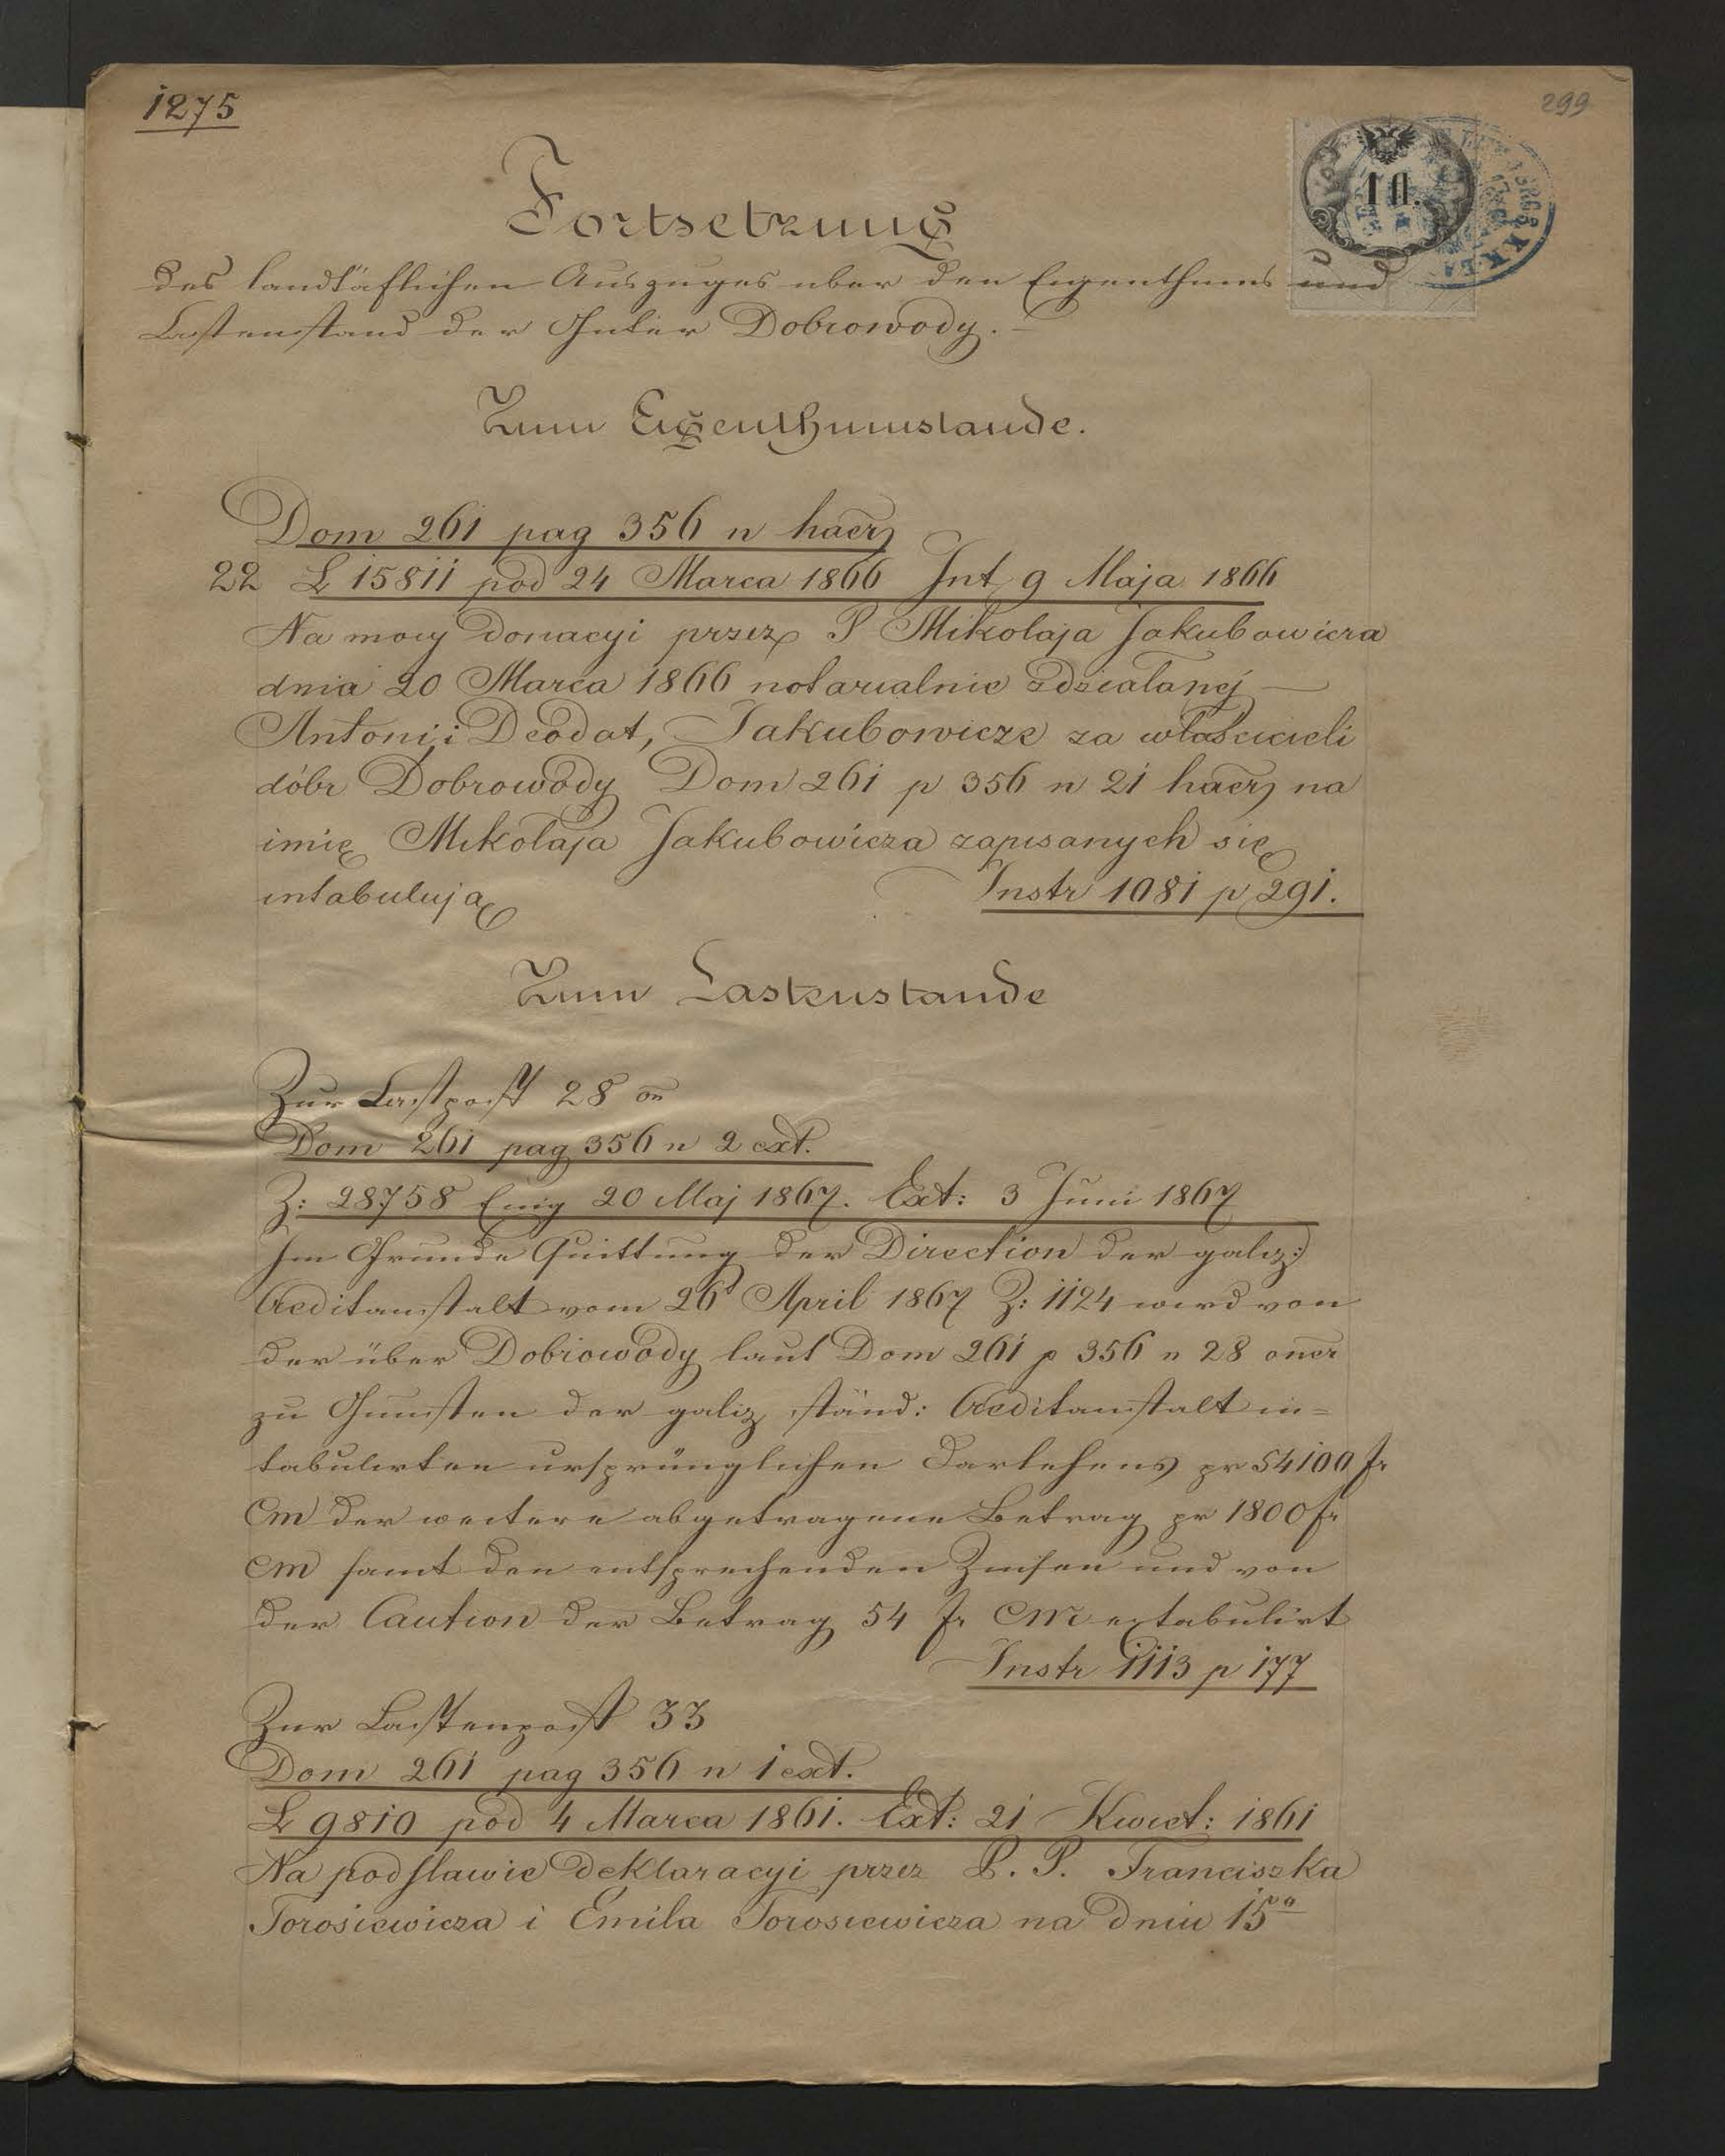 1275
299
10.
Fortsetzung
des landtäflichen Auszuges uber den Eigenthums und
Lastenstand der Güter Dobrowody. —
Zum Eigenthumstande.
Dom 261 pag 356 n haer
22 L 15811 pod 24 Marca 1866 Int 9 Maja 1866
Na mocy donacyi przez P Mikolaja Jakubowicza
dnia 20 Marca 1866 notarialnie zdziałanej —
Antoni i Deodat, Jakubowicze za właścicieli
dóbr Dobrowody Dom 261 p 356 n 21 haer na
imię Mikołaja Jakubowicza zapisanych się
intabulują
Instr 1081 p 291.
Zum Lastenstande
Zur Lastpost 28 on
Dom 261 pag 356 n 2 ext.
Z: 28758 Eing 20 Maj 1867. Ext: 3 Juni 1867
Im Grunde Quittung der Direction der galiz:
Creditanstalt vom 26 April 1867 Z: 1124 wird von
der über Dobrowody laut Dom 261 p 356 n 28 oner
zu Gunsten der galiz ständ: Creditanstalt in=
tabulirten ursprünglichen Darlehens pr 54100 fr
CM der weitere abgetragene Betrag pr 1800 fr
CM samt den entsprechenden Zinsen und von
der Caution der Betrag 54 fr CM extabulirt
Instr 1113 p 177
Zur Lastenpost 33
Dom 261 pag 356 n 1 ext.
L 9810 pod 4 Marca 1861. Ext: 21 Kwiet: 1861
Na podstawie deklaracyi przez P. P. Franciszka
Torosiewicza i Emila Torosiewicza na dniu 15